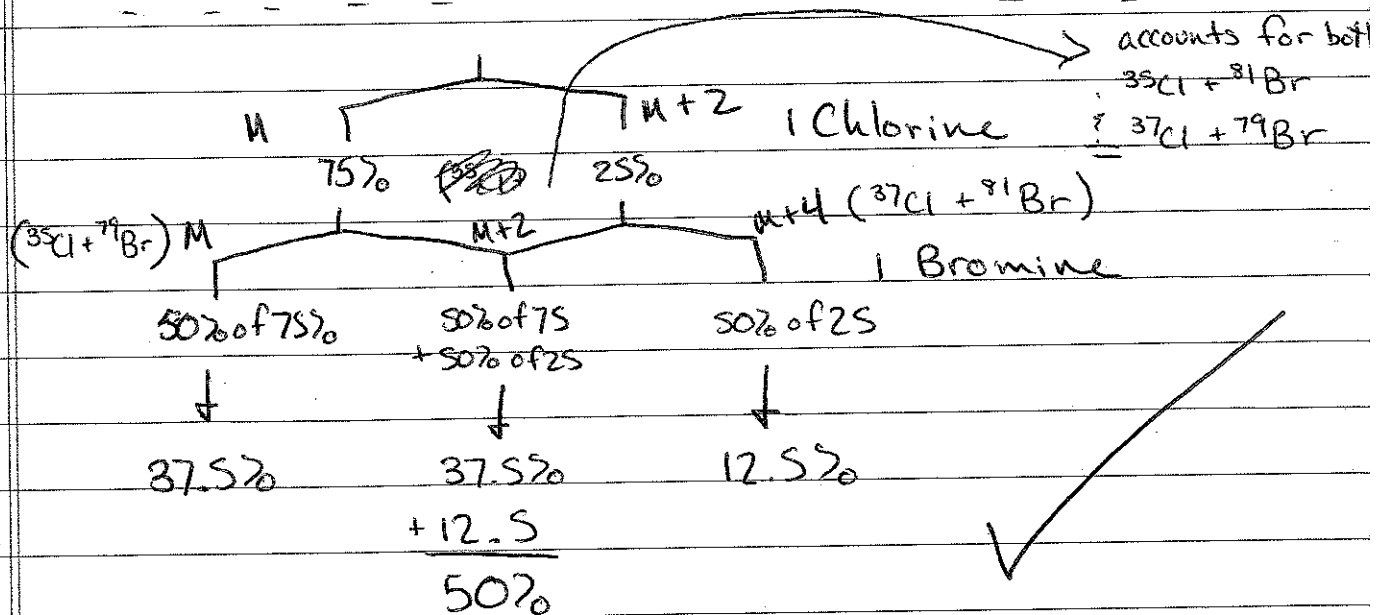 accounts for both
35Cl + 81Br
M
M + 2
1 Chlorine
& 37Cl + 79Br
75%
25%
(35Cl + 79Br) M
M+2
M+4 (37Cl + 81Br)
1 Bromine
50% of 75%
50% of 75
50% of 25
+ 50% of 25
37.5%
37.5%
12.5%
+ 12.5
50%